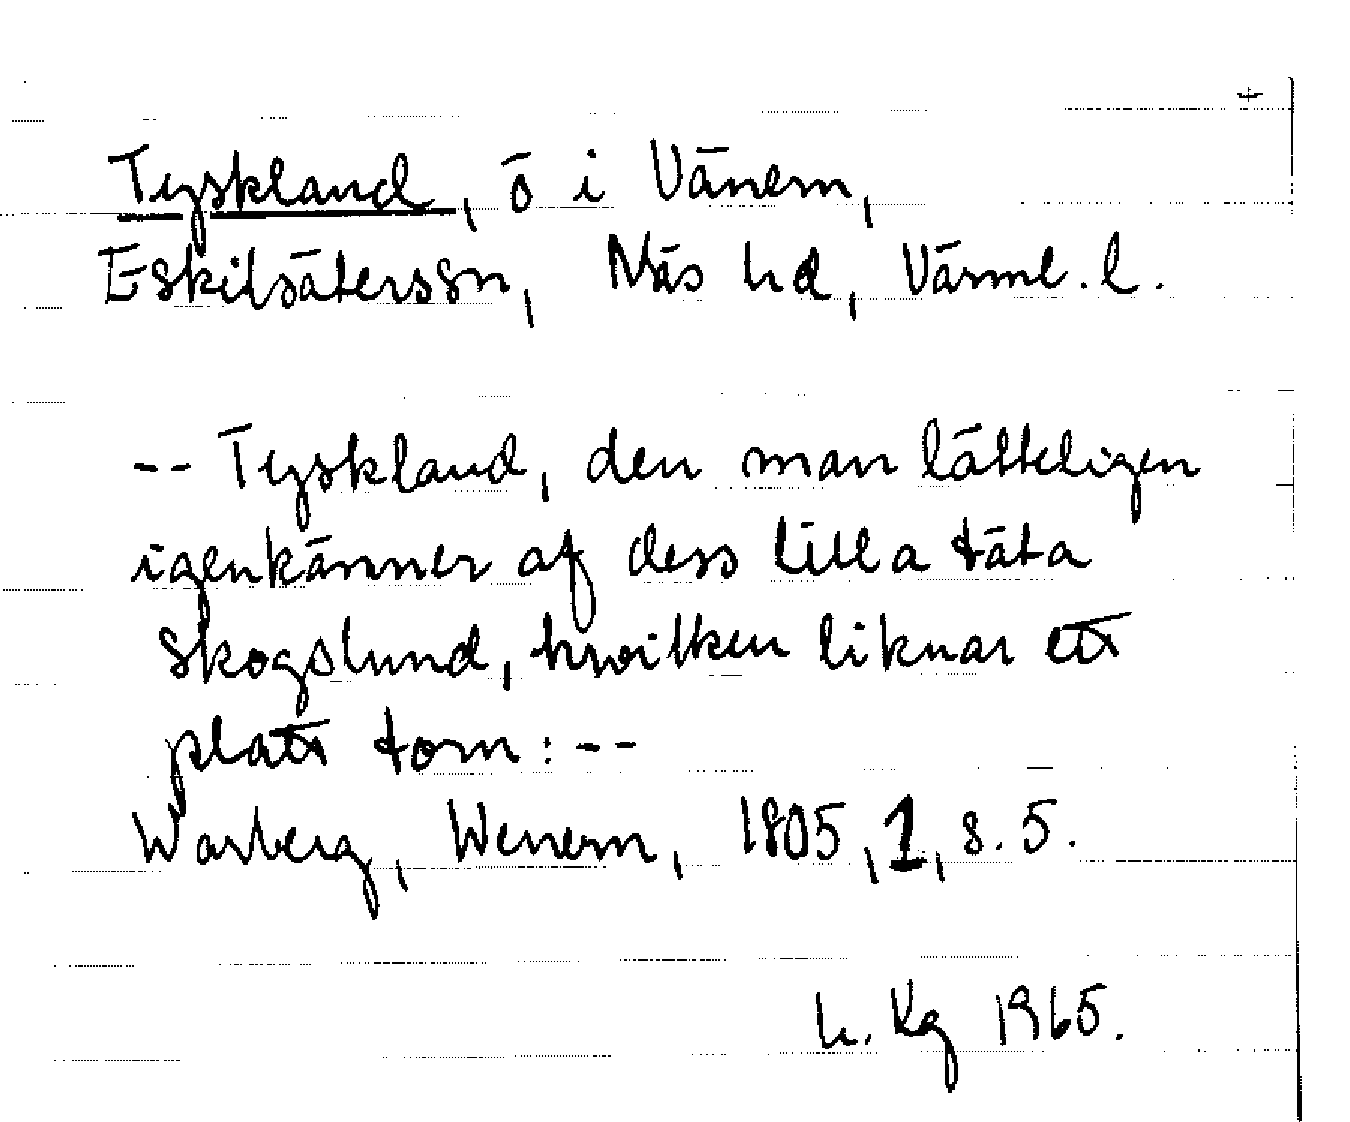 Tyskland, ö i Vänern,
Eskilsäterssn, Näs hd, Värml. l.
-- Tyskland, den man lätteligen
igenkänner af dess lilla täta
skogslund, hwilken liknar ett
platt torn: --
Warberg, Wenern, 1805, 1, s. 5.
h. Kg 1965.